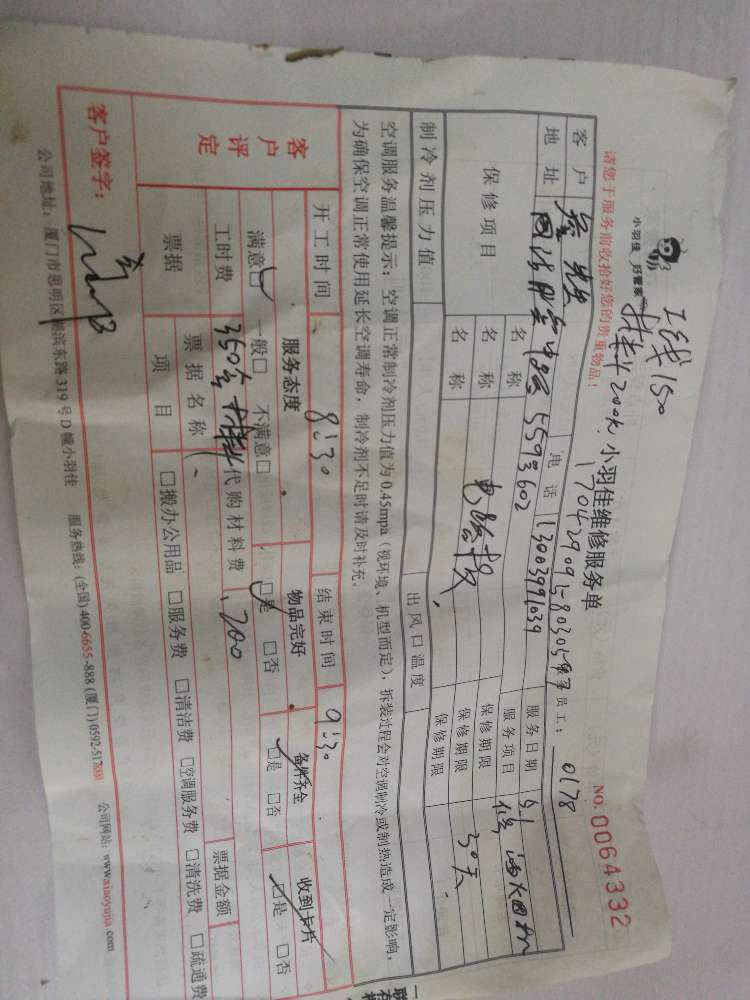 工钱150
材料200元
小羽佳 好管家
小羽佳维修服务单
NO. 0064332
请您于服务前收拾好您的贵重物品！
员工： 0178
客户
电话 13003991039
服务日期 5.1
地址
5593602
服务项目
保修项目
名称
保修期限
名称
保修期限 30天
名称
保修期限
制冷剂压力值
出风口温度
空调服务温馨提示：空调正常制冷剂压力值为0.45mpa（视环境、机型而定），拆装过程会对空调制冷或制热造成一定影响，
为确保空调正常使用延长空调寿命，制冷剂不足时请及时补充。
开工时间 8:30 结束时间 9:30
客户评定
服务态度 物品完好 备件齐全 收到卡片
满意□ 一般□ 不满意□ □是 □否 □是 □否 □是 □否
工时费 350含材料 代购材料费 200
票据 票据名称 票据金额
项目 □搬办公用品 □服务费 □清洁费 □空调服务费 □清洗费 □疏通费
客户签字：
公司地址：厦门市思明区湖滨东路319号D幢小羽佳 服务热线：(全国)400-6655-888 (厦门)0592-517 公司网站：www.xiaoyujia.com